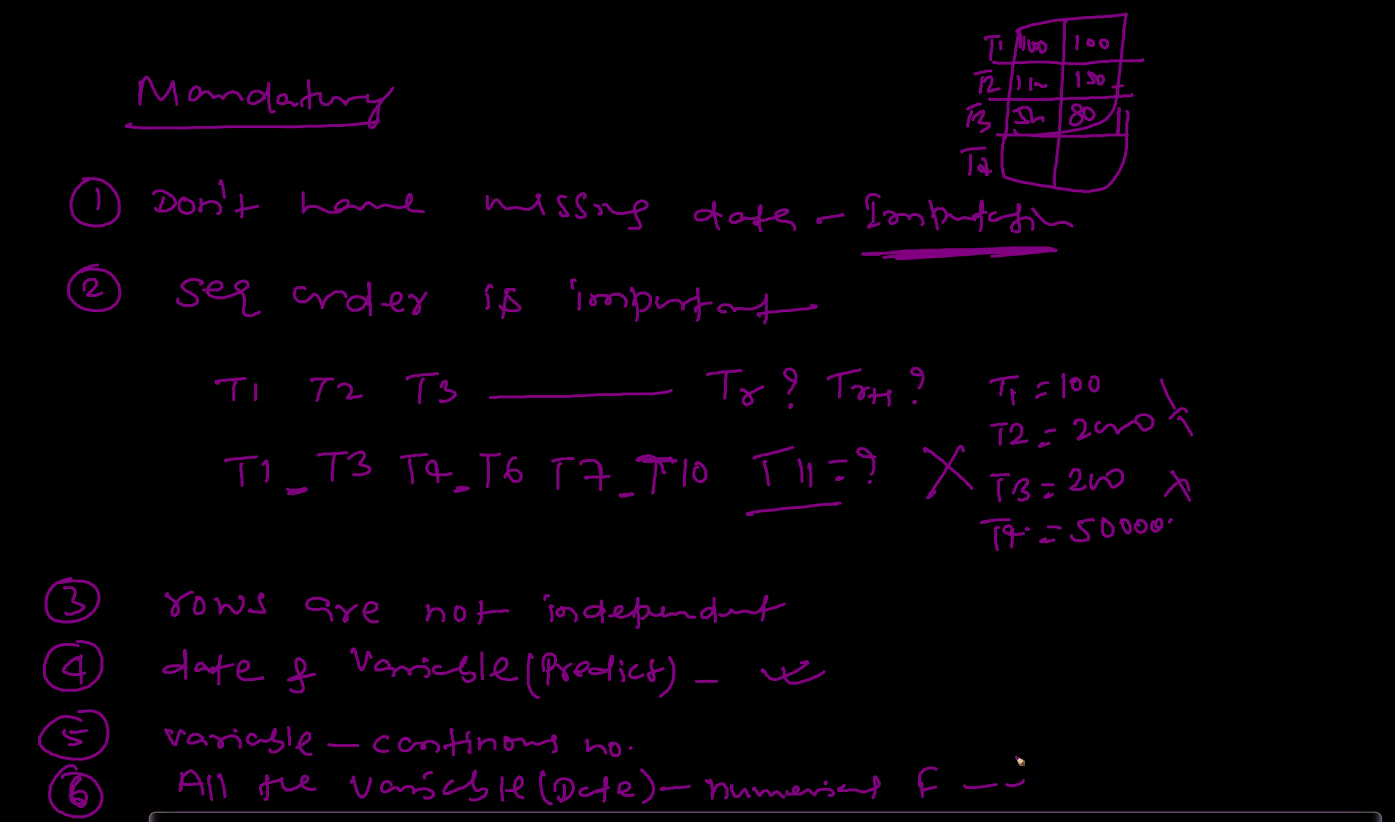 Mandatory
T1 100 100
T2 110 150
T3 80
T4
① Don't have missing data - Imputation
② Seq order is important
T1 T2 T3 ——— Tr ? Tr+1 ?
T1 = 100
T2 = 200
T1 - T3 T4 - T6 T7 - T10 T11 = ? X
T3 = 200
T4 = 50000
③ rows are not independent
④ date & Variable (Predict) -
⑤ variable - continous no.
⑥ All the variable (Date) - numerical F --